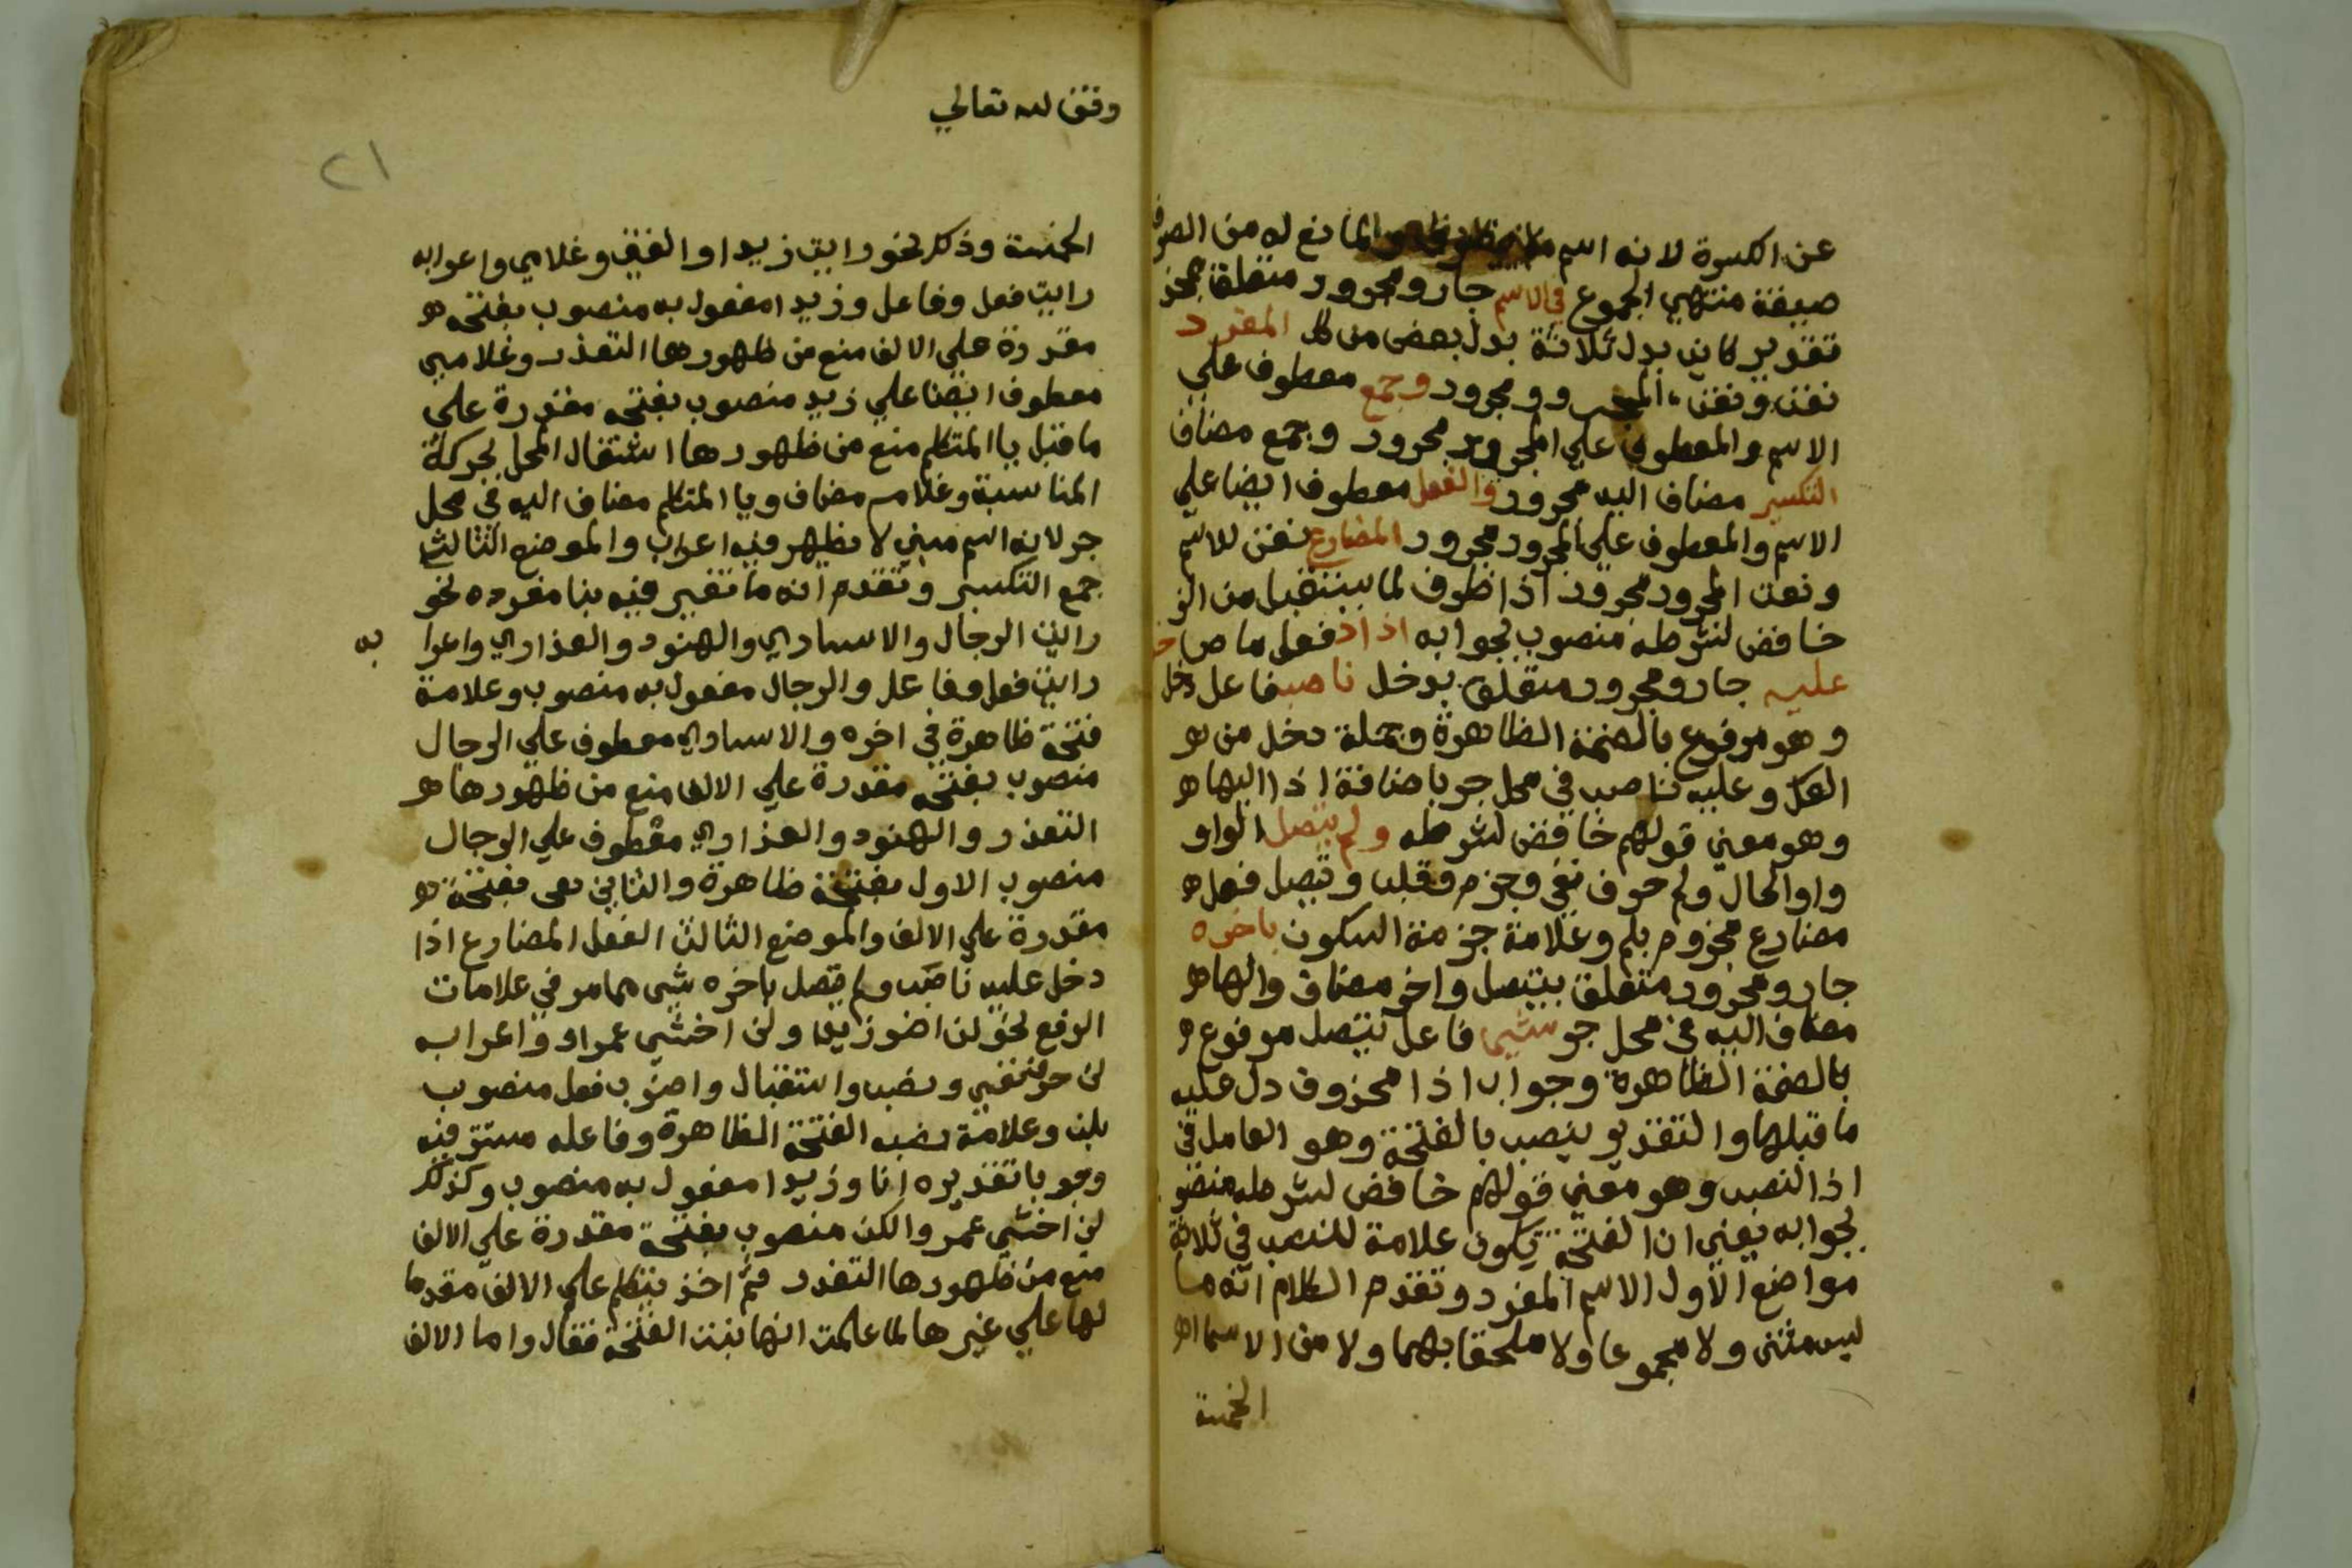 عن الكسرة لانه اسم والمانع له من الصرف
صيغة منتهي الجموع في الاسم جار ومجرور متعلق بمحذ
تقديره كاين بدل ثلاثة بدل بعض من كل المفرد
نعت ونعت المجرور ومجرور وجمع معطوف علي
الاسم والمعطوف علي المجرور مجرور وجمع مضاف
التكسير مضاف اليه مجرور والفعل معطوف ايضا علي
الاسم والمعطوف علي المجرور مجرور المضارع نعت للاسم
ونعت المجرور مجرور اذا ظرف لما يستقبل من الز
خافض لشرطه منصوب بجوابه اذا دخل فعل ماض
عليه جار ومجرور متعلق بدخل ناصب فاعل دخل
وهو مرفوع بالضمة الظاهرة وجملة دخل من هو
الفعل وعليه ناصب في محل جر باضافة اذا اليها هو
وهو معني قولهم خافض لشرطه ولم يتصل الواو
واو الحال ولم حرف نفي وجزم وقلب ويتصل فعل هو
مضارع مجزوم بلم وعلامة جزمه السكون باخره
جار ومجرور متعلق بيتصل واخر مضاف والها هو
مضاف اليه في محل جر شيء فاعل يتصل مرفوع
بالضمة الظاهرة وجواب اذا محذوف دل عليه
ما قبلها والتقدير ينصب بالفتحة وهو العامل في
اذا النصب وهو معني قولهم خافض لشرطه منصو
بجوابه يعني ان الفتحة تكون علامة للنصب في ثلاثة
مواضع الاول الاسم المفرد وتقدم الكلام انه ما
ليس مثني ولا مجموعا ولا ملحقا بهما ولا من الاسما هو
الخمسة
وقف لله تعالي
٢١
الخمسة وذلك نحو رايت زيدا والفتي وغلامي واعرابه
رايت فعل وفاعل وزيدا مفعول به منصوب بفتحة هو
مقدرة علي الالف منع من ظهورها التعذر وغلامي
معطوف ايضا علي زيد منصوب بفتحه مقدرة علي
ما قبل يا المتكلم منع من ظهورها اشتغال المحل بحركة
المناسبة وغلام مضاف ويا المتكلم مضاف اليه في محل
جر لانه اسم مبني لا يظهر فيه اعراب والموضع الثاني
جمع التكسير وتقدم انه ما تغير فيه بنا مفرده نحو
رايت الرجال والاساري والهنود والعذاري واعرا به
رايت فعل وفاعل والرجال مفعول به منصوب وعلامة
فتحة ظاهرة في اخره والاساري معطوف علي الرجال
منصوب بفتحه مقدرة علي الالف منع من ظهورها هو
التعذر والهنود والعذاري معطوف علي الرجال
منصوب الاول بفتحة ظاهرة والثاني بفتحة هو
مقدرة علي الالف والموضع الثالث الفعل المضارع اذا
دخل عليه ناصب ولم يتصل باخره شي مما مر في علامات
الرفع نحو لن اضرب زيدا ولن اخشي عمرا واعرابه
لن حرف نفي ونصب واستقبال واضرب فعل منصوب
بلن وعلامة نصبه الفتحة الظاهرة وفاعله مستتر فيه
وجوبا تقديره انا وزيدا مفعول به منصوب وكذلك
لن اخشي عمر والكن منصوب بفتحة مقدرة علي الالف
منع من ظهورها التعذر ثم اخذ يتكلم علي الالف مقدما
لها علي غيرها لما علمت انها بنت الفتحة فقال واما الالف